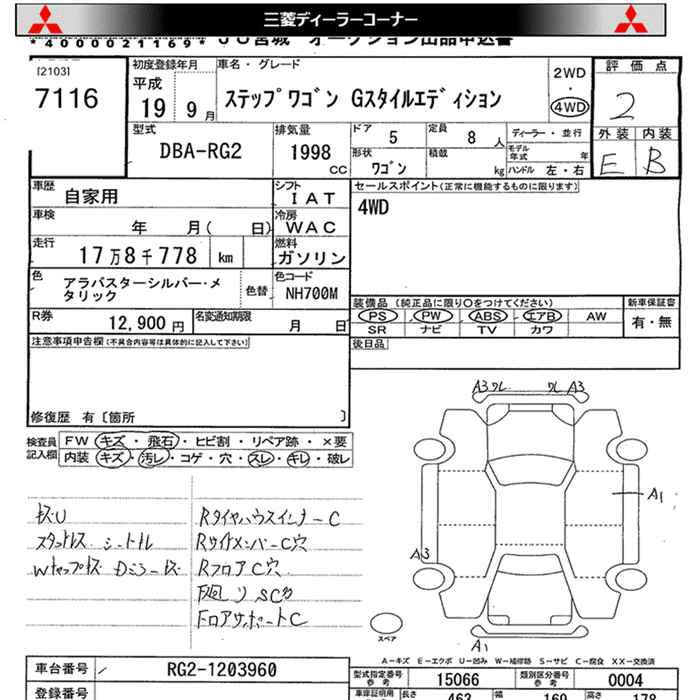 三菱ディーラーコーナー
*4000021169* JU宮城 オークション出品申込書
[2103]
7116
初度登録年月
平成
19 9月
車名・グレード
ステップワゴン Gスタイルエディション
2WD
・
4WD
評価点
2
外装 内装
E B
型式
DBA-RG2
排気量
1998
CC
ドア 5
定員 8人
形状 ワゴン
積載 kg
ディーラー・並行
モデル年式 年
ハンドル 左・右
車歴 自家用
シフト IAT
車検 年 月( 日)
冷房 WAC
走行 17万8千778 km
燃料 ガソリン
色 アラバスターシルバー・メ
タリック
色替
色コード NH700M
R券 12,900円
名変通知期限 月 日
セールスポイント(正常に機能するものに限ります)
4WD
装備品(純正品に限り○をつけてください)
新車保証書
PS PW ABS エアB AW
SR ナビ TV カワ
有・無
後日品
注意事項申告欄(不具合内容等は具体的に記入して下さい)
修復歴 有〔箇所 〕
検査員 FW キズ・飛石・ヒビ割・リペア跡・×要
記入欄 内装 キズ・汚レ・コゲ・穴・スレ・キレ・破レ
スタットレス シートル
RタイヤハウスインナーC
RサイドメンバーC穴
RフロアC穴
F廻り SC穴
FロアサポートC
A3 ワレ ワレ A3
A1
A3
スペア
A1
A-キズ E-エクボ U-凹み W-補修跡 S-サビ C-腐食 XX-交換済
車台番号 RG2-1203960
型式指定番号
参考
15066
類別区分番号
参考
0004
登録番号
車車証明用 長さ 463 幅 169 高さ 178